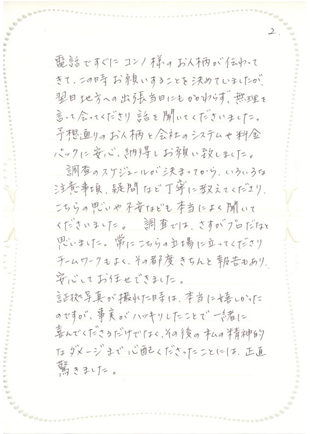 2.
電話ですぐにコンノ様のお人柄が伝わって
きて、この時お願いすることを決めていましたが、
翌日地方への出張当日にもかかわらず、無理を
言って会ってくださり話を聞いてくださいました。
予想通りのお人柄と会社のシステムや料金
パックに安心、納得しお願い致しました。
調査のスケジュールが決まってから、いろいろな
注意事項、疑問など丁寧に教えてくださり、
こちらの思いや不安なども本当によく聞いて
くださいました。調査では、さすがプロだなと
思いました。常にこちらの立場に立ってくださり
チームワークもよく、その都度きちんと報告もあり、
安心してお任せできました。
証拠写真が撮れた時は、本当に嬉しかった
のですが、事実がハッキリしたことで一緒に
喜んでくださるだけでなく、その後の私の精神的
なダメージまで心配くださったことには、正直
驚きました。